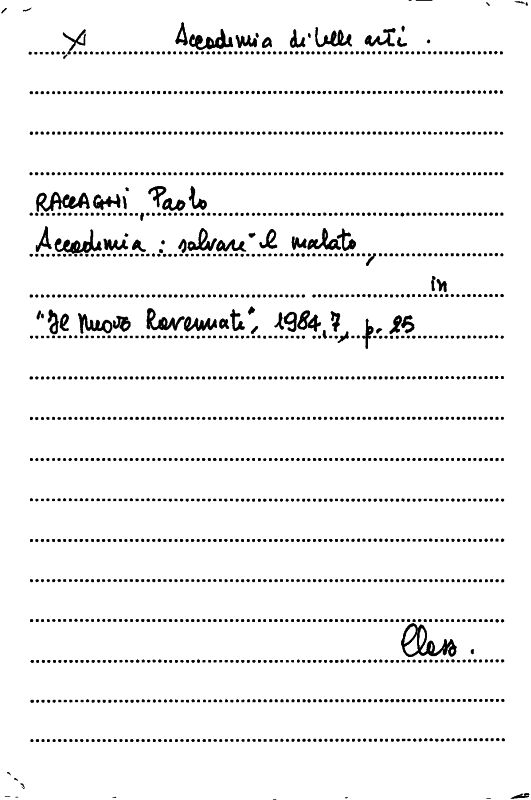 X Accademia di belle arti.
RACCAGHI, Paolo
Accademia: salvare il malato,
in
"Il Nuovo Ravennate", 1984, 7, p. 25
Class.